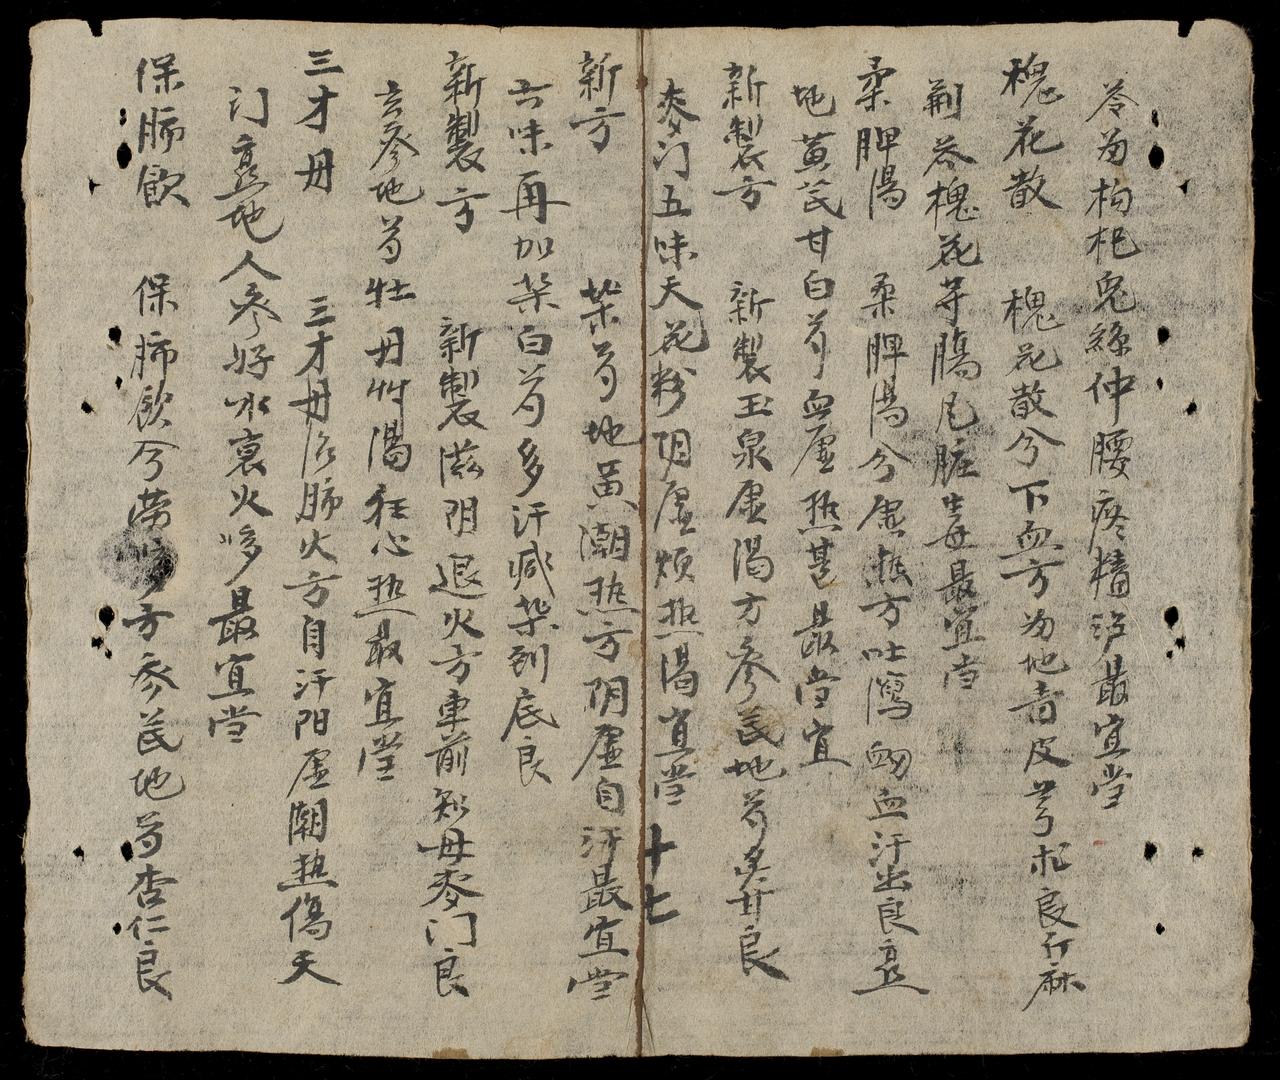 苓为枸杞兔絲仲腰疼精汐最宜当
槐花散　槐花散兮下血方为地青皮芎术良升麻
荆芥槐花芋腸风脏毒最宜当
柔脾湯　柔脾湯兮虚热方吐瀉衄血汗出良熟
地黄芪甘白芍血虚热甚最当宜
新製方　新製玉泉虚渴方參芪地芍炙甘良
麦门五味天花粉阴虚烦热渴宜当
十七
新方　柴芍地黄潮热方阴虚自汗最宜当
六味再加柴白芍多汗减柴到底良
新製方　新製滋阴退火方車前知母麥门良
玄參地芍牡丹竹湯狂心热最宜当
三才丹　三才丹治肺火方自汗阳虚潮热傷天
门熟地人參好水衰火多最宜当
保肺飲　保肺飲兮劳嗽方參芪地芍杏仁良